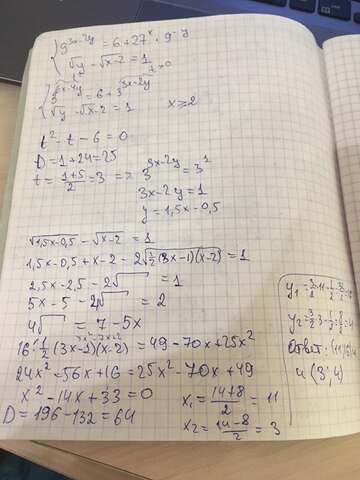 9^{3x-2y} = 6 + 27^x · 9^{-y}
√y - √x-2 = 1
t>0
3^{6x-4y} = 6 + 3^{3x-2y}
√y - √x-2 = 1 x ≥ 2
t² - t - 6 = 0
D = 1 + 24 = 25
t = (1+5)/2 = 3 => 3^{3x-2y} = 3^1
3x - 2y = 1
y = 1,5x - 0,5
√1,5x-0,5 - √x-2 = 1
1,5x - 0,5 + x - 2 - 2√½(3x-1)(x-2) = 1
2,5x - 2,5 - 2√ = 1
5x - 5 - 2√ = 2
4√ = 7 - 5x
3x²-7x+2
16 · ½(3x-1)(x-2) = 49 - 70x + 25x²
24x² - 56x + 16 = 25x² - 70x + 49
x² - 14x + 33 = 0
D = 196 - 132 = 64
x₁ = (14+8)/2 = 11
x₂ = (14-8)/2 = 3
Ответ: (11;16)
и (3;4)